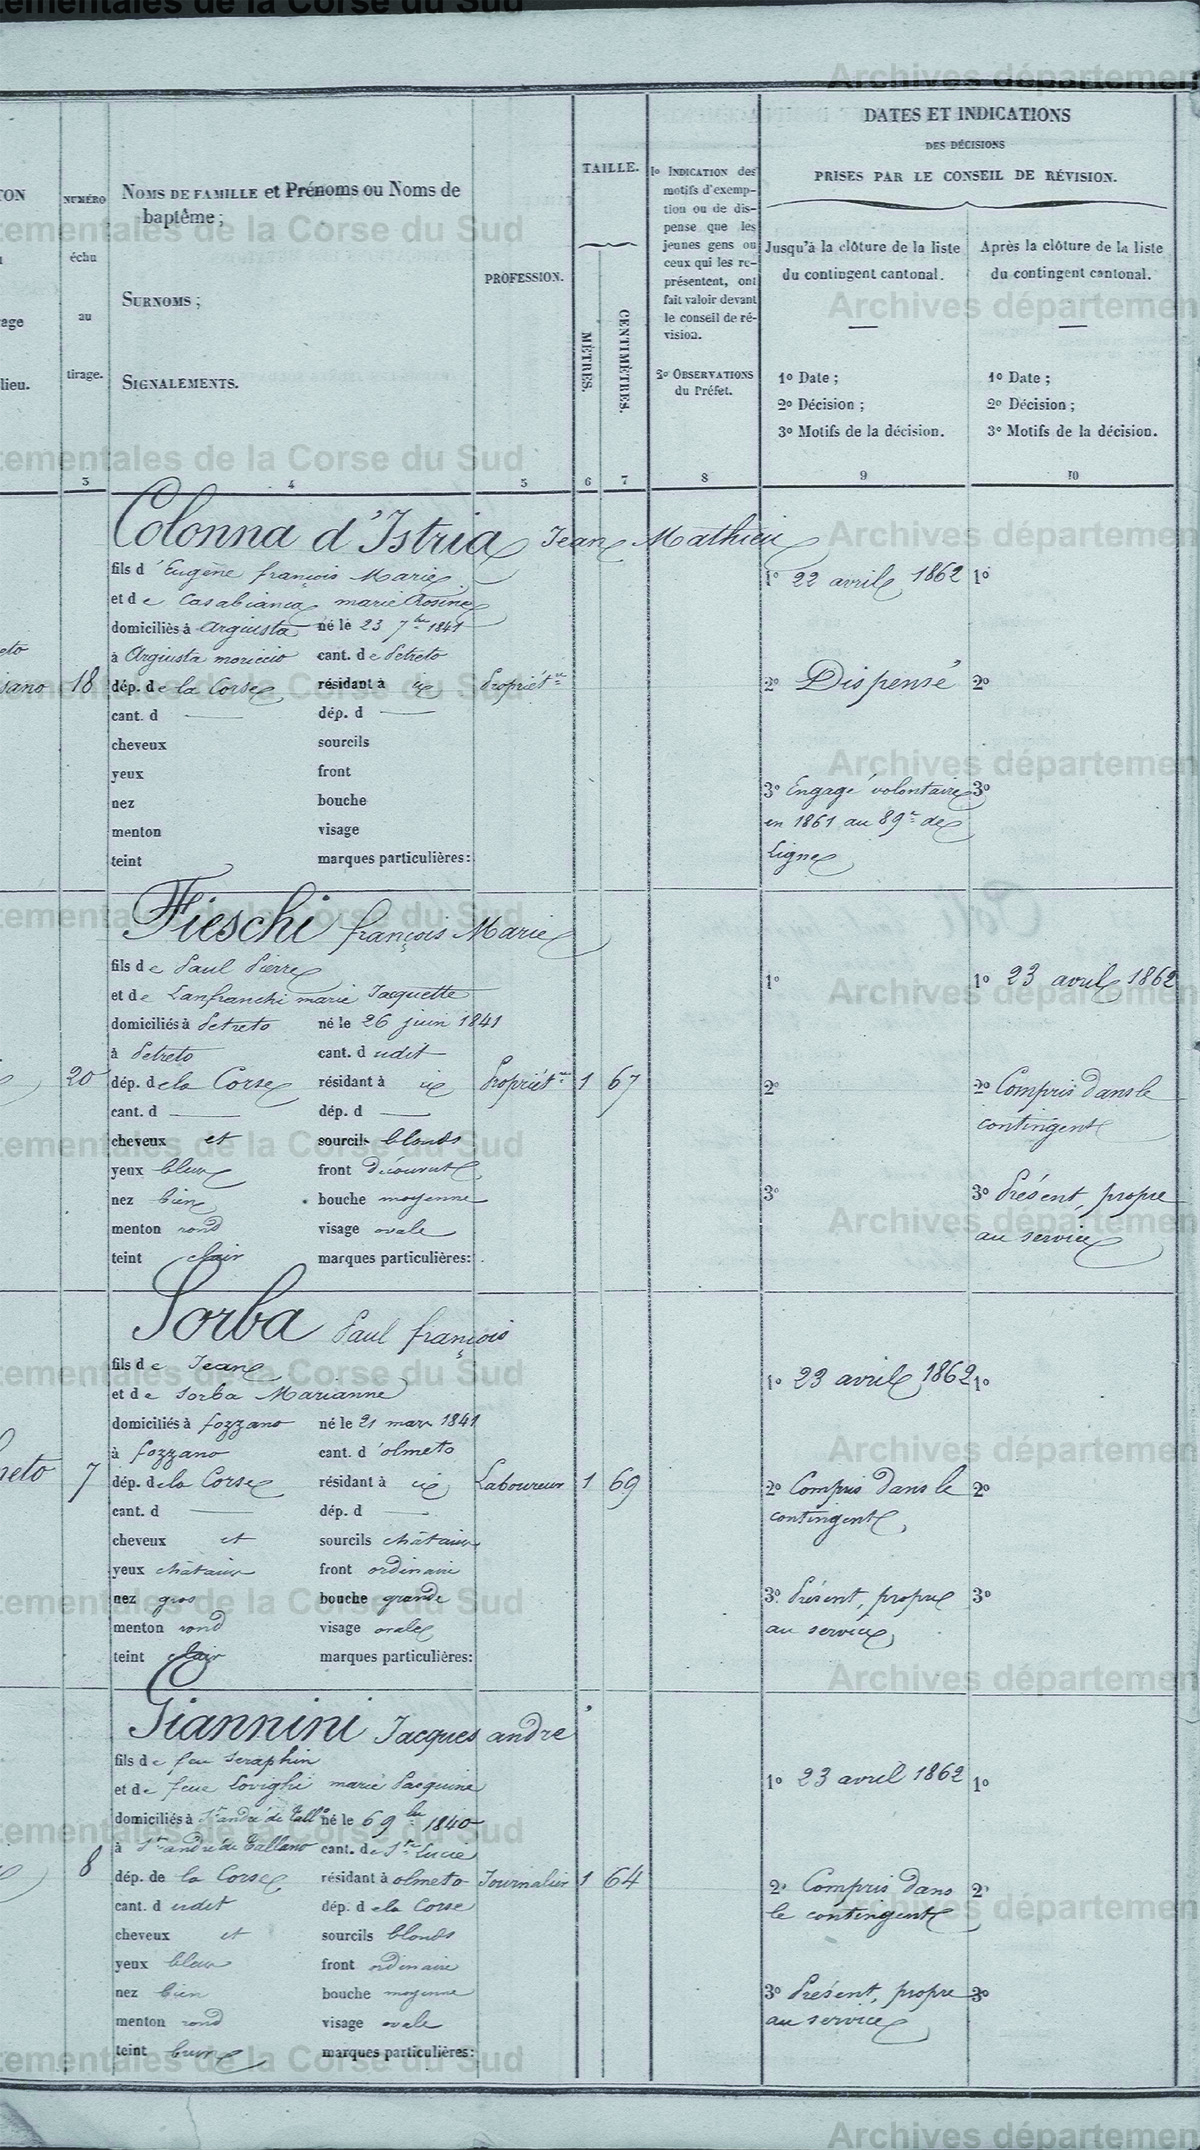 tementales de la Corse du Sud
Archives départemen
DATES ET INDICATIONS
DES DÉCISIONS
PRISES PAR LE CONSEIL DE RÉVISION.
TON
age
lieu.
NUMÉRO
échu
au
tirage.
NOMS DE FAMILLE et Prénoms ou Noms de
baptême ;
SURNOMS ;
SIGNALEMENTS.
PROFESSION.
TAILLE.
MÈTRES.
CENTIMÈTRES.
1o INDICATION des
motifs d'exemp-
tion ou de dis-
pense que les
jeunes gens ou
ceux qui les re-
présentent, ont
fait valoir devant
le conseil de ré-
vision.
2o OBSERVATIONS
du Préfet.
Jusqu'à la clôture de la liste
du contingent cantonal.
1o Date ;
2o Décision ;
3o Motifs de la décision.
Après la clôture de la liste
du contingent cantonal.
1o Date ;
2o Décision ;
3o Motifs de la décision.
3 4 5 6 7 8 9 10
Colonna d'Istria Jean Mathieu
fils d'Eugène françois Marie
et de Casabianca marie Rosine
domiciliés à Argiusta né le 23 7bre 1841
à Argiusta moriccio cant. de Petreto
18 dép. de la Corse résidant à ix Propriétre
cant. d dép. d
cheveux sourcils
yeux front
nez bouche
menton visage
teint marques particulières:
1o 22 avril 1862 1o
2o Dispensé 2o
3o Engagé volontaire 3o
en 1861 au 89e de
Ligne
Fieschi françois Marie
fils de Paul Pierre
et de Lanfranchi marie Jacquette
domiciliés à Petreto né le 26 juin 1841
à Petreto cant. d udit
20 dép. de la Corse résidant à ix Propriétre 1 67
cant. d dép. d
cheveux et sourcils blonds
yeux bleus front découvert
nez bien bouche moyenne
menton rond visage ovale
teint clair marques particulières:
1o 1o 23 avril 1862
2o 2o Compris dans le
contingent
3o 3o Présent, propre
au service
Sorba Paul françois
fils de Jean
et de Sorba Marianne
domiciliés à fozzano né le 21 mars 1841
à fozzano cant. d'olmeto
7 dép. de la Corse résidant à ix Laboureur 1 69
cant. d dép. d
cheveux et sourcils châtains
yeux châtains front ordinaire
nez gros bouche grande
menton rond visage ovale
teint clair marques particulières:
1o 23 avril 1862 1o
2o Compris dans le 2o
contingent
3o Présent, propre 3o
au service
Giannini Jacques andré
fils de feu Seraphin
et de feue Lovighi marie Pasquine
domiciliés à St andré de Tallo né le 6 9bre 1840
à St andré de Tallano cant. de Ste Lucie
8 dép. de la Corse résidant à olmeto Journalier 1 64
cant. d udit dép. de la Corse
cheveux et sourcils blonds
yeux bleus front ordinaire
nez bien bouche moyenne
menton rond visage ovale
teint brun marques particulières:
1o 23 avril 1862 1o
2o Compris dans 2o
le contingent
3o Présent, propre 3o
au service